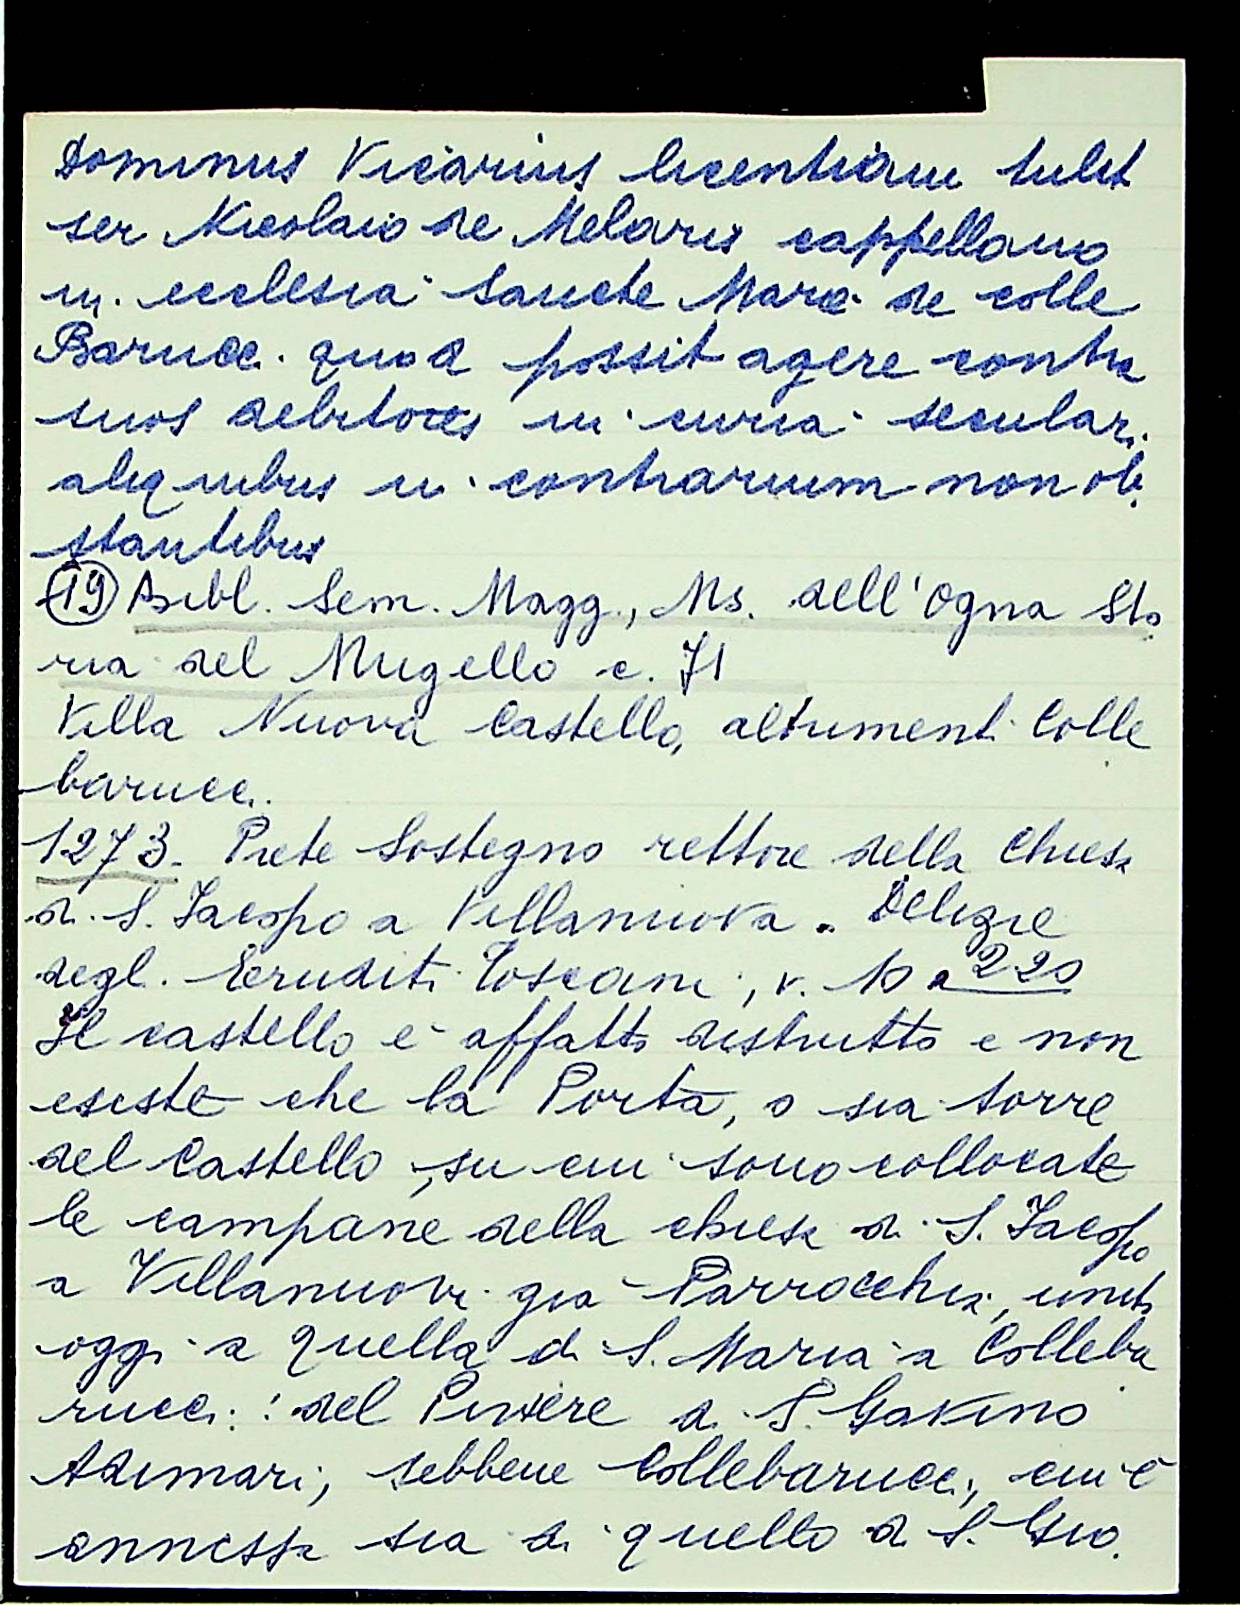 Dominus Vicarius licentiam tulit
ser Nicolaio de Melaris cappellano
in ecclesia Sancte Marie de colle
Barucci quod possit agere contra
suos debitores in curia seculari
aliquibus in contrarium non ob
stantibus
(19) Bibl. Sem. Magg., Ms. dell'Ogna Sto
ria del Mugello c. 71
Villa Nuova Castello, altrimenti Colle
barucci.
1273. Prete Sostegno rettore della Chiesa
di S. Jacopo a Villanuova. Delizie
degli Eruditi Toscani, v. 10 a 220
Il castello è affatto distrutto e non
esiste che la Porta, o sia torre
del Castello, su cui sono collocate
le campane della chiesa di S. Jacopo
a Villanuova già Parrocchia, unita
oggi a quella di S. Maria a Colleba
rucci: del Piviere di S. Gavino
Adimari, sebbene Collebarucci, cui è
annessa sia di quello di S. Gio.